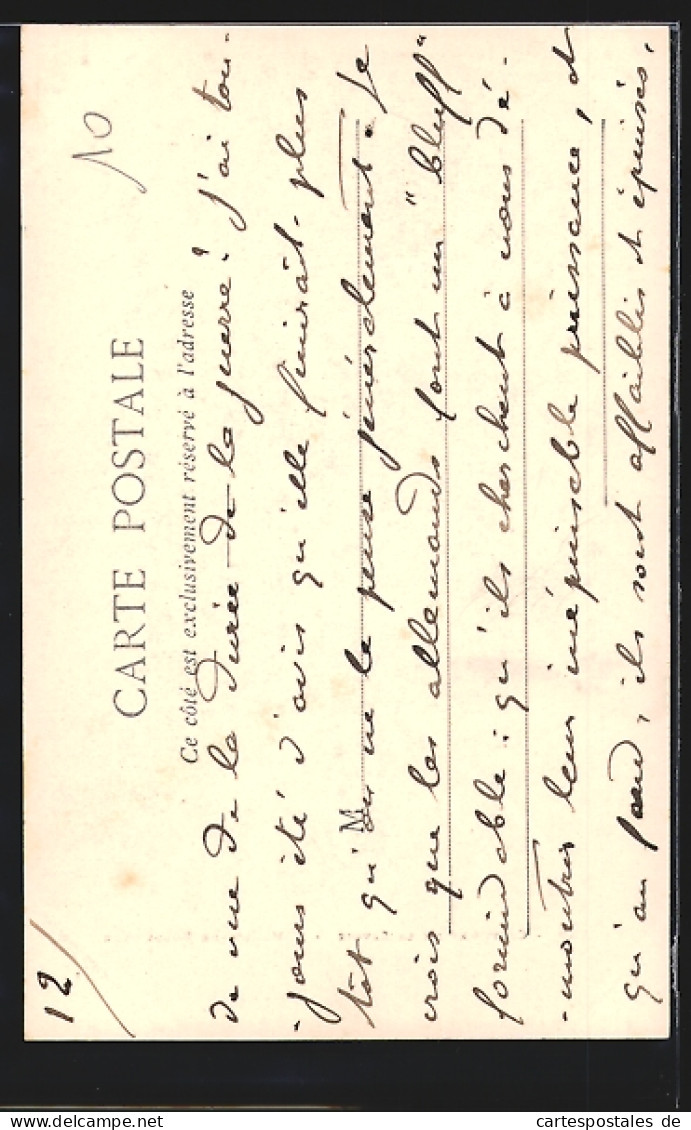 12
10
CARTE POSTALE
Ce côté est exclusivement réservé à l'adresse
de vue de la durée de la guerre : j'ai tou-
-jours été d'avis qu'elle finirait plus
tôt qu'on ne le pense généralement. Je
crois que les allemands font un "bluff"
formidable : qu'ils cherchent à nous dé-
-montrer leur inépuisable puissance, et
qu'au fond, ils sont affaiblis et épuisés,
cartespostales de